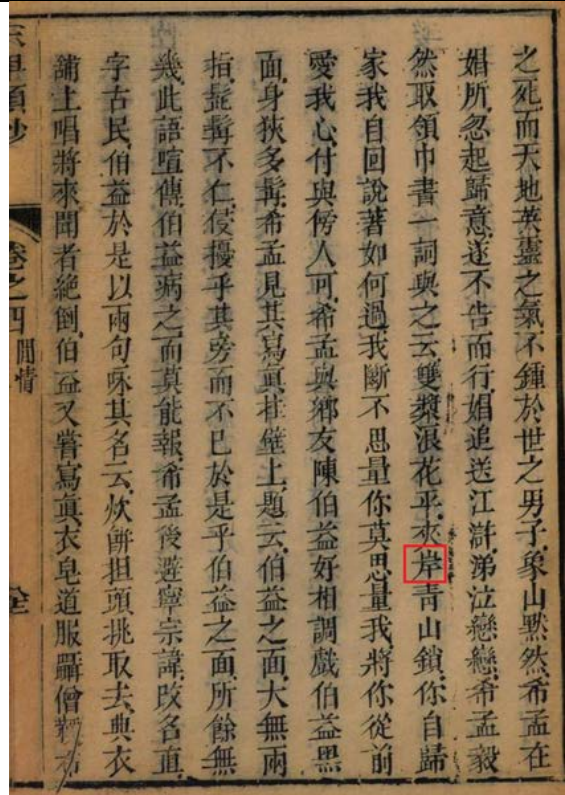 之死而天地英靈之氣不鍾於世之男子象山默然希孟在
娼所忽起歸意遂不告而行娼追送江滸涕泣戀戀希孟毅
然取領巾書一詞與之云雙槳浪花平夾岸青山鎖你自歸
家我自回說著如何過我斷不思量你莫思量我將你從前
愛我心付與傍人可希孟與鄉友陳伯益好相調戲伯益黑
面身狹多髯希孟見其寫真挂壁上題云伯益之面大無兩
指髭髯不仁侵擾乎其旁而不已於是乎伯益之面所餘無
幾此語喧傳伯益病之而莫能報希孟後避寧宗諱改名直
字古民伯益於是以兩句咏其名云炊餅担頭挑取去典衣
舖上唱將來聞者絶倒伯益又嘗寫眞衣皂道服躡僧鞋
卷之四 閒情